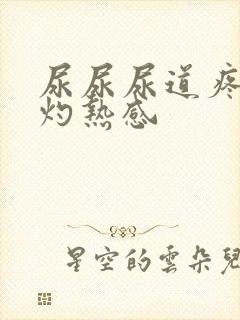 尿尿尿道疼
灼熱感
星空的雲朵兒